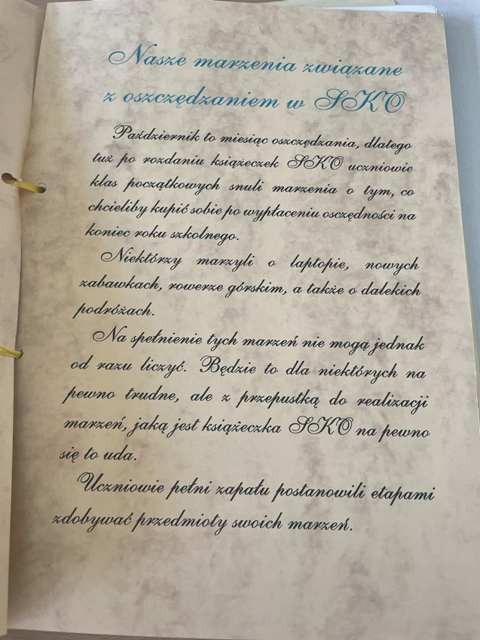 Nasze marzenia związane
z oszczędzaniem w SKO
Październik to miesiąc oszczędzania, dlatego
tuż po rozdaniu książeczek SKO uczniowie
klas początkowych snuli marzenia o tym, co
chcieliby kupić sobie po wypłaceniu osczędności na
koniec roku szkolnego.
Niektórzy marzyli o laptopie, nowych
zabawkach, rowerze górskim, a także o dalekich
podróżach.
Na spełnienie tych marzeń nie mogą jednak
od razu liczyć. Będzie to dla niektórych na
pewno trudne, ale z przepustką do realizacji
marzeń, jaką jest książeczka SKO na pewno
się to uda.
Uczniowie pełni zapału postanowili etapami
zdobywać przedmioty swoich marzeń.